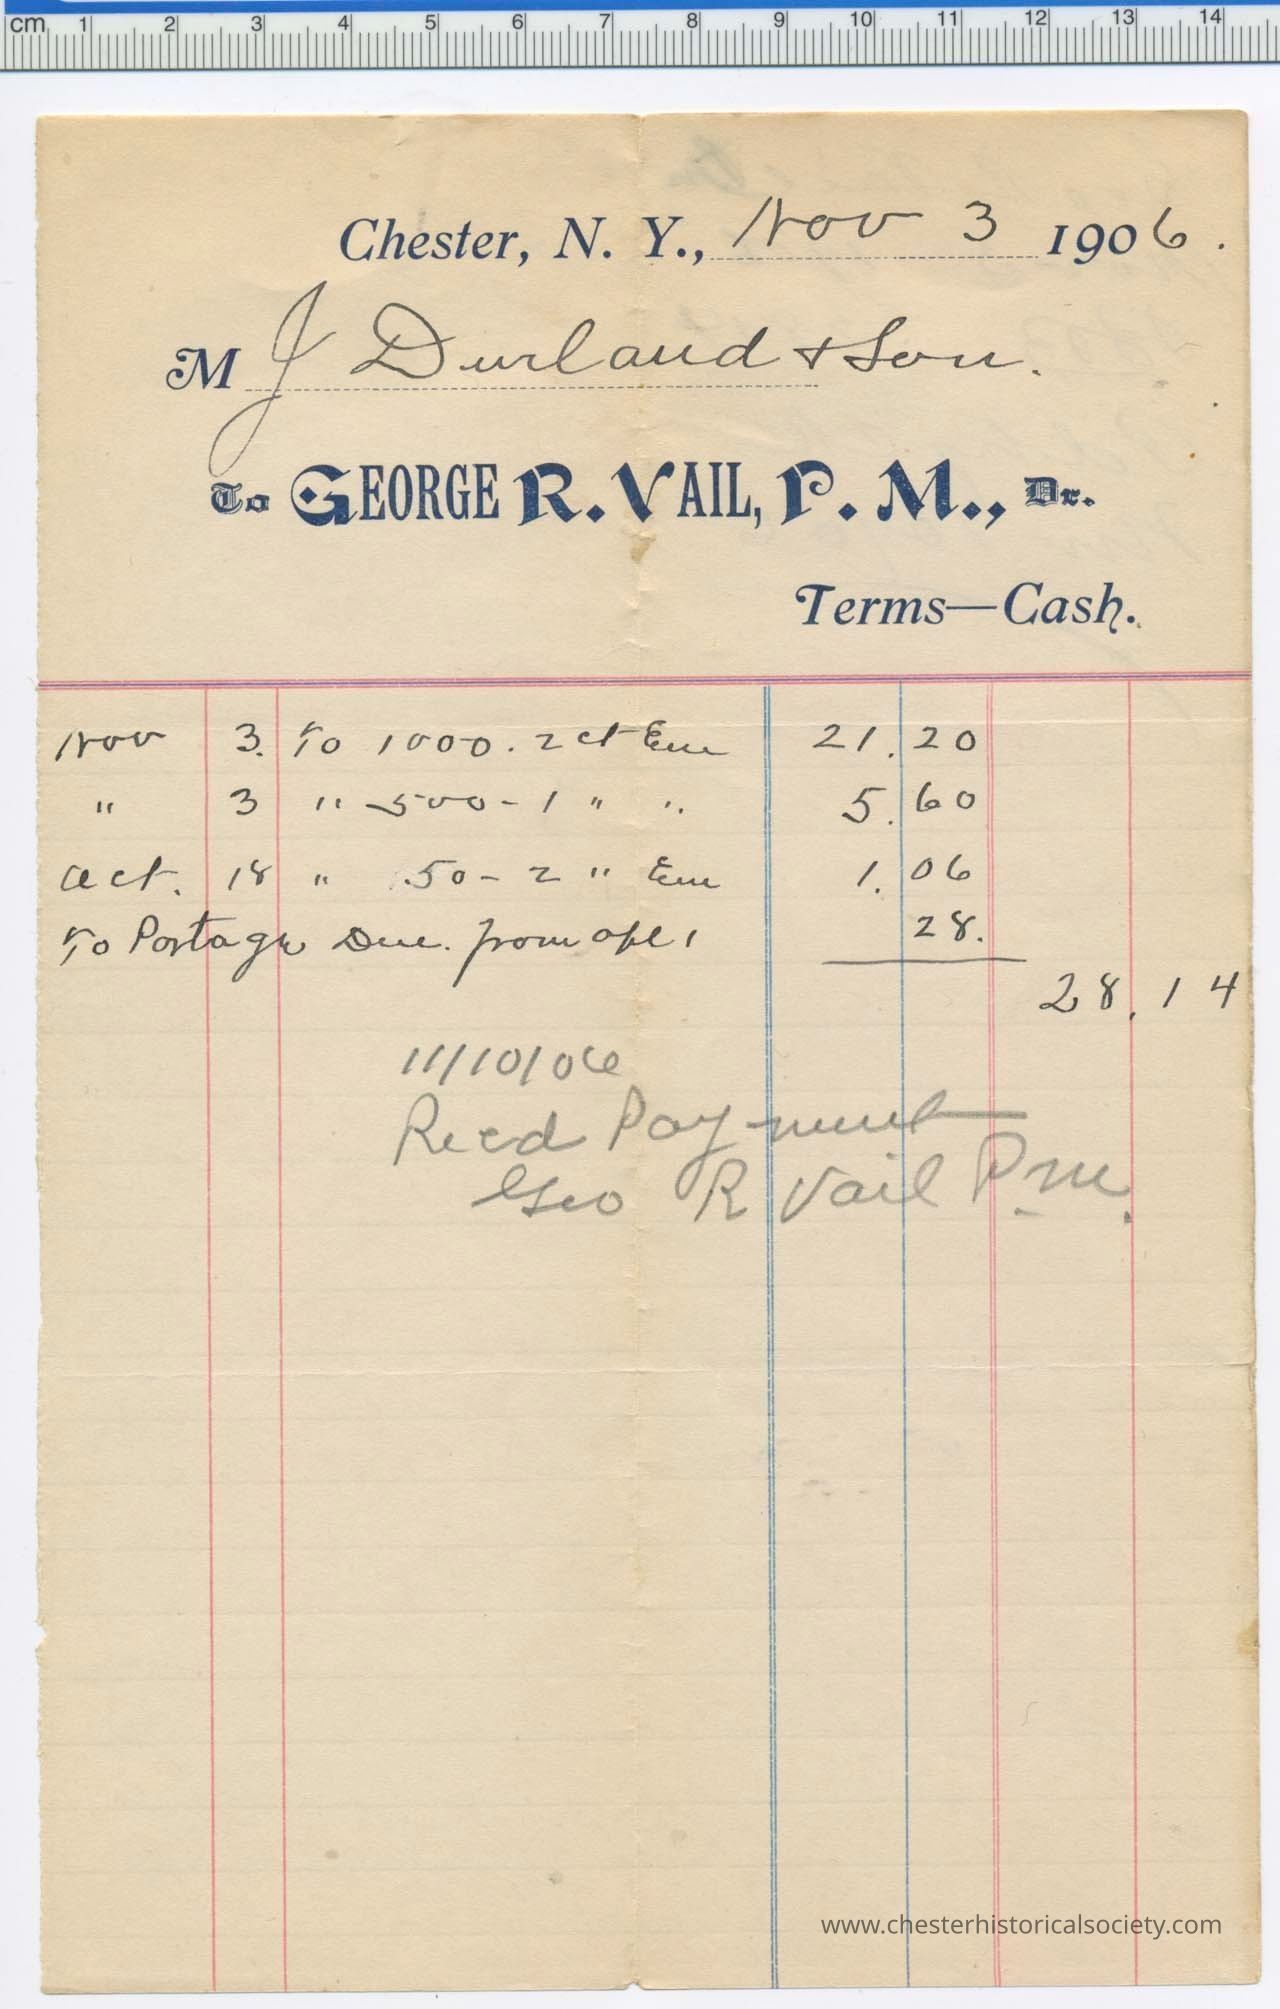 cm 1 2 3 4 5 6 7 8 9 10 11 12 13 14
Chester, N. Y., Nov 3 1906.
M J Durland & Son.
To GEORGE R. VAIL, P. M., Dr.
Terms—Cash.
Nov 3. To 1000. 2 ct Em 21.20
" 3 " 500 - 1 " " 5.60
Oct. 18 " 50 - 2 " Em 1.06
To Postage Due. from 1 28.
28.14
11/10/06
Recd Payment
Geo R Vail P.M.
www.chesterhistoricalsociety.com